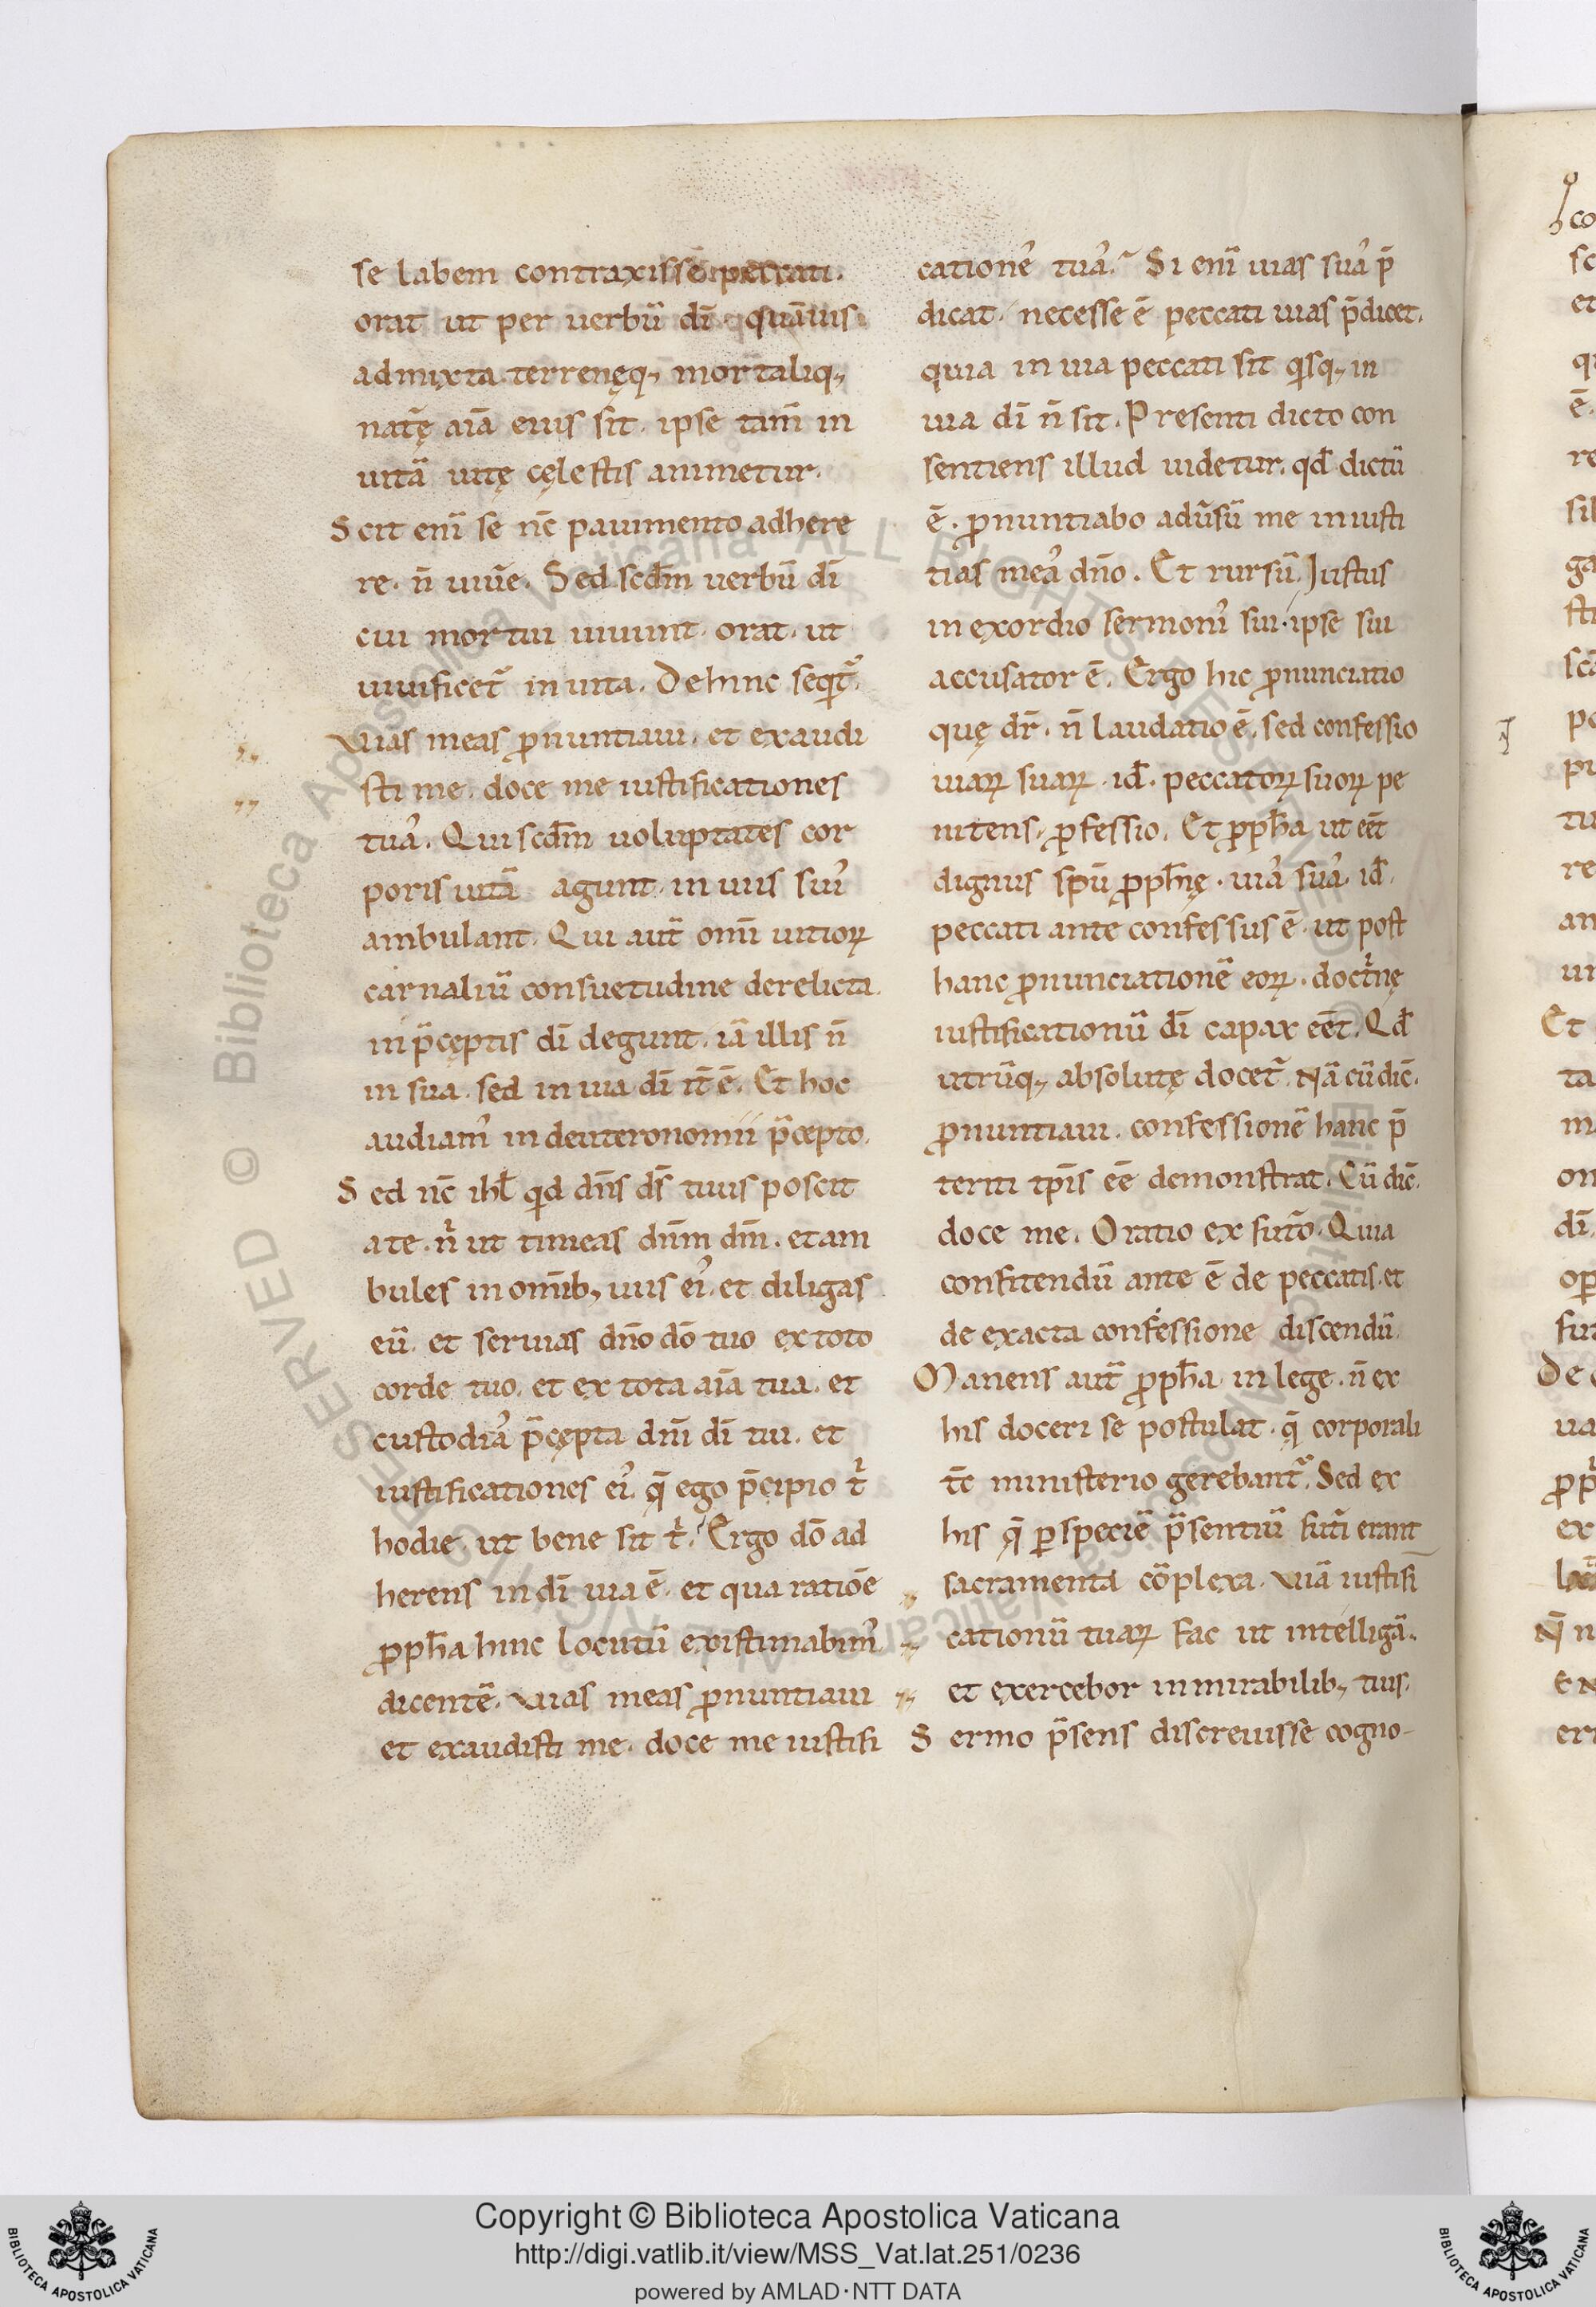 se labem contraxisse peccati.
orat ut per uerbū dī quāuis
admixta terrenęq; mortaliq;
natę̄ aīa eius sit. ipse tam̄ in
uitā uitę cęlestis animetur.
Scit enī se nc̄ pauimento adhere
re. n̄ uiūe. Sed scdm̄ uerbū dī
cui mortui uiuunt. orat. ut
uiuificet᷑ in uita. Dehinc seqͥt᷑.
Vias meas ꝓnuntiaui. et exaudi
sti me. doce me iustificationes
tuaꝰ. Qui scdm̄ uoluptates cor
poris uitā agunt. in uiis suiꝰ
ambulant. Qui aut̄ om̄i uitioꝝ
carnaliū consuetudine derelicta.
in p̄cęptis dī degunt. iā illis n̄
in sua. sed in uia dī it̄ ē. Et hoc
audiamꝰ in deuteronomii p̄cepto.
Sed nc̄ ihl̄ qͥd dn̄s ds̄ tuus poscit
a te. nͥ ut timeas dn̄m dm̄. et am
bules in omīb; uiis eiꝰ. et diligas
eū. et seruias dn̄o dō tuo ex toto
corde tuo. et ex tota aīa tua. et
custodiaꝰ p̄cępta dn̄i dī tui. et
iustificationes eiꝰ. q̄ ego p̄cipio tͥ
hodie. ut bene sit tͥ. Ergo dō ad
herens in dī uia ē. et qua ratiōe
ꝓph̄a hinc locutū existimabimꝰ
dicentē. Vias meas ꝓnuntiaui
et exaudisti me. doce me iustifi
cationeꝰ tuaꝰ. Si enī uias suaꝰ p̄
dicat. necesse ē peccati uias p̄dicet.
quia in uia peccati sit qͥsq; in
uia dī n̄ sit. Presenti dicto con
sentiens illud uidetur. qd̄ dictū
ē. ꝓnuntiabo adūsū me iniusti
tias meaꝰ dn̄o. Et rursū. Iustus
in exordio sermoniꝰ sui ipse sui
accusator ē. Ergo hic ꝓnunciatio
quę dr̄. n̄ laudatio ē. sed confessio
uiaꝝ suaꝝ. id̄. peccatoꝝ suoꝝ pe
nitens. ꝓfessio. Et ꝓph̄a ut eēt
dignus spū ꝓph̄ię. uiaꝰ suaꝰ. id̄.
peccati ante confessus ē. ut post
hanc ꝓnunciationē eoꝝ. doctͥnę
iustificationū dī capax eēt. Qd̄
utrūq; absolutę docet᷑. Nā cū dic̄.
ꝓnuntiaui. confessionē hanc p̄
teriti tp̄is eē demonstrat. Cū dic̄.
doce me. Oratio ex futō. Quia
confitendū ante ē de peccatis. et
de exacta confessione discendū.
Manens aut̄ ꝓph̄a in lege. n̄ ex
his doceri se postulat. q̄ corporali
tc̄ ministerio gerebant᷑. Sed ex
his q̄ ꝑ speciē p̄sentiū futī erant
sacramenta cōplexa. Viā iustifi
cationū tuaꝝ fac ut intelligā.
et exercebor in mirabilib; tuis.
Sermo p̄sens discreuisse cogno-
Copyright © Biblioteca Apostolica Vaticana
http://digi.vatlib.it/view/MSS_Vat.lat.251/0236
powered by AMLAD·NTT DATA